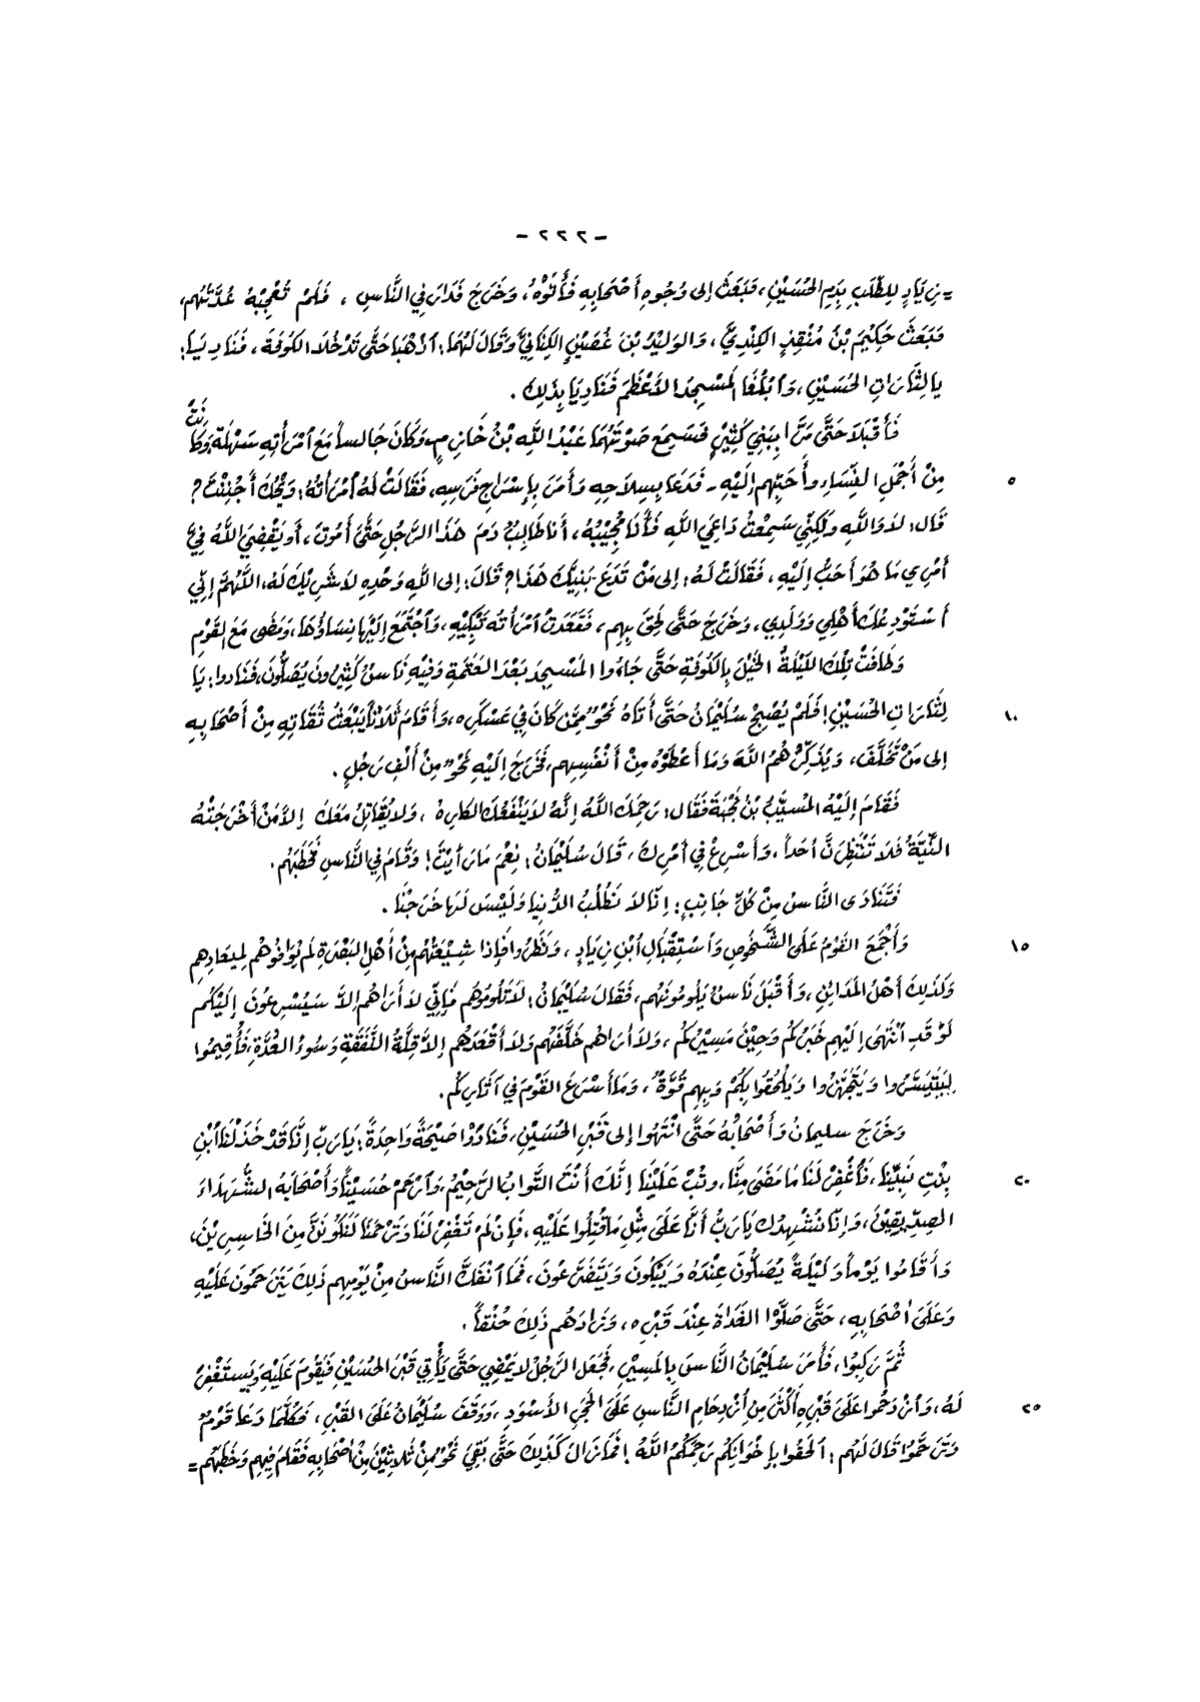 - ٢٢٢ -
= زِيَادٍ لِلطَّلَبِ بِدَمِ الحُسَيْنِ، فَبَعَثَ إلى وُجُوهِ أَصْحَابِهِ فَأَتَوْهُ، وَخَرَجَ فَدَارَ فِي النَّاسِ، فَلَمْ تُعْجِبْهُ عُدَّتُهُم،
فَبَعَثَ حَكِيْمَ بْنَ مُنْقِذٍ الكِنْدِيَّ، وَالوَلِيْدَ بْنَ غُصَيْنٍ الكِنَانِيَّ وَقَالَ لَهُمَا: اذْهَبَا حَتَّى تَدْخُلَا الكُوفَةَ، فَنَادِيَا:
يا لِثَارَاتِ الحُسَيْنِ، وَابْلُغَا المَسْجِدَ الأَعْظَمَ فَنَادِيَا بِذَلِكَ.
فَأَقْبَلَا حَتَّى مَرَّا بِبَنِي كَثِيْرٍ فَسَمِعَ صَوْتَهُمَا عَبْدُ اللَّهِ بْنُ خَازِمٍ، وَكَانَ جَالِسًا مَعَ امْرَأَتِهِ سَهْلَةَ وَكَانَتْ
مِنْ أَجْمَلِ النِّسَاءِ وأَحَبِّهِم إلَيْهِ - فَدَعَا بِسِلاحِهِ وَأَمَرَ بِإِسْرَاجِ فَرَسِهِ، فَقَالَتْ لَهُ امْرَأَتُهُ: وَيْحَكَ أَجُنِنْتَ؟
٥
قَالَ: لا وَاللَّهِ وَلَكِنِّي سَمِعْتُ دَاعِيَ اللَّهِ فَأَنَا مُجِيْبُهُ، أَنا طَالِبٌ دَمَ هَذَا الرَّجُلِ حَتَّى أَمُوتَ، أَو يَقْضِيَ اللَّهُ فِيَّ
أَمْرِي مَا هُوَ أَحَبُّ إِلَيْهِ، فَقَالَتْ لَهُ: إلى مَنْ تَدَعُ بَنِيْكَ هَذَا؟ قَالَ: إلى اللَّهِ وَحْدِهِ لا شَرِيْكَ لَهُ، اللَّهُمَّ إِنِّي
أَسْتَوْدِعُكَ أَهْلِي وَوَلَدِي، وَخَرَجَ حَتَّى لَحِقَ بِهِم، فَقَعَدَتِ امْرَأَتُهُ تَبْكِيْهِ، وَاجْتَمَعَ إِلَيْهَا نِسَاؤُهَا، وَمَضَى مَعَ القَوْمِ
وَطَافَتْ تِلْكَ اللَّيْلَةَ الخَيْلُ بِالكُوفَةِ حَتَّى جَاءُوا المَسْجِدَ بَعْدَ العَتَمَةِ وَفِيْهِ نَاسٌ كَثِيْرُونَ يُصَلُّونَ، فَنَادوا: يَا
لِثَارَاتِ الحُسَيْنِ! فَلَمْ يُصْبِحْ سُلَيْمَانُ حَتَّى أَتَاهُ نَحْوٌ مِمَّن كَانَ فِي عَسْكَرِهِ، وَأَقَامَ ثَلَاثًا يَبْعَثُ ثُقَاتِهِ مِنْ أَصْحَابِهِ
١٠
إلى مَنْ تَخَلَّفَ، وَيُذَكِّرُهُمُ اللَّهَ وَمَا أَعْطَوْهُ مِنْ أَنْفُسِهِم، فَخَرَجَ إِلَيْهِ نَحْوٌ مِنْ أَلْفِ رَجُلٍ.
فَقَامَ إِلَيْهُ المُسَيَّبُ بْنُ نَجَبَةَ فَقَالَ: رَحِمَكَ اللَّهُ إِنَّهُ لا يَنْفَعُكَ الكَارِهُ، وَلا يُقَاتِلُ مَعَكَ إِلا مَنْ أَخْرَجَتْهُ
النِّيَّةُ فَلَا تَنْتَظِرَنَّ أَحَداً، وَأَسْرِعْ فِي أَمْرِكَ، قَالَ سُلَيْمَانُ: نِعْمَ مَا رَأَيْتَ! وَقَامَ فِي النَّاسِ فَخَطَبَهُم.
فَتَنَادَى النَّاسُ مِنْ كُلِّ جَانِبٍ: إِنَّا لا نَطْلُبُ الدُّنْيا وَلَيْسَ لَهَا خَرَجْنَا.
وَأَجْمَعَ القَوْمُ عَلَى الشُّخُوصِ وَاسْتِقْبَالِ ابْنِ زِيَادٍ، وَنَظَرُوا فَإِذا شِيْعَتُهُم مِنْ أَهْلِ البَصْرَةِ لَم يُوَافُوهُم لِمِيعَادِهِم
١٥
وَكَذَلِكَ أَهْلُ المَدَائِنِ، وَأَقْبَلَ نَاسٌ يَلُومُونَهُم، فَقَالَ سُلَيْمَانُ: لَا تَلُومُوهُم فَإِنِّي لا أَرَاهُم إِلاَّ سَيُسْرِعُونَ إِلَيْكُم
لَوْ قَدِ انْتَهَى إِلَيْهِم خَبَرُكُم وَحِيْنُ مَسِيْرِكُم، وَلَا أَرَاهُم خَلَّفَهُم وَلا أَقْعَدَهُم إِلا قِلَّةُ النَّفَقَةِ وَسُوءُ العُدَّةِ، فَأَقِيمُوا
لِيَتَيَسَّرُوا وَيَتَجَهَّزُوا وَيَلْحَقُوا بِكُمْ وَبِهِم قُوَّةٌ، وَمَا أَسْرَعَ القَوْمَ فِي آثَارِكُم.
وَخَرَجَ سليمانُ وَأَصْحَابُهُ حَتَّى انْتَهَوا إِلى قَبْرِ الحُسَيْنِ، فَنَادَوْا صَيْحَةً وَاحِدَةً: يَا رَبِّ إِنَّا قَدْ خَذَلْنَا ابْنَ
بِنْتِ نَبِيِّنَا، فَاغْفِرْ لَنَا مَا مَضَى مِنَّا، وتُبْ عَلَيْنَا إِنَّكَ أَنْتَ التَّوابُ الرَّحِيْمُ، وَارْحَمْ حُسَيْناً وَأَصْحَابَهُ الشُّهَدَاءَ
٢٠
الصِدِّيقِيْنَ، وَإِنّا نُشْهِدُكَ يَا رَبُّ أَنَّا عَلَى مِثْلِ مَا قُتِلُوا عَلَيْهِ، فَإِنْ لَمْ تَغْفِرْ لَنَا وَتَرْحَمْنَا لَنَكُونَنَّ مِنَ الخَاسِرِيْنَ،
وَأَقَامُوا يَوْماً وَلَيْلَةً يُصَلُّونَ عِنْدَهُ وَيَبْكُونَ وَيَتَضَرَّعُونَ، فَمَا انْفَكَّ النَّاسُ مِنْ يَوْمِهِم ذَلِكَ يَتَرَحَّمُونَ عَلَيْهِ
وَعَلَى أَصْحَابِهِ، حَتَّى صَلَّوْا الغَدَاةَ عِنْدَ قَبْرِهِ، وَزَادَهُم ذَلِكَ حُنْقاً.
ثُمَّ رَكِبُوا، فَأَمَرَ سُلَيْمَانُ النَّاسَ بِالمَسِيْرِ، فَجَعَلَ الرَّجُلُ لا يَمْضِي حَتَّى يَأْتِي قَبْرَ الحُسَيْنِ فَيَقُومَ عَلَيْهِ وَيَستَغْفِرُ
لَهُ، وَازْدَحَمُوا عَلَى قَبْرِهِ أَكْثَرَ مِنِ ازْدِحَامِ النَّاسِ عَلَى الحَجَرِ الأَسْوَدِ، وَوَقَفَ سُلَيْمَانُ عَلَى القَبْرِ، فَكُلَّمَا دَعَا قَوْمٌ
٢٥
وَتَرَحَّمُوا قَالَ لَهُم: الْحَقُوا بِإِخْوَانِكُم رَحِمَكُمُ اللَّهُ! فَمَا زَالَ كَذَلِكَ حَتَّى بَقِيَ نَحْوٌ مِنْ ثَلاثِيْنَ مِنْ أَصْحَابِهِ فَقَامَ فِيهِم وَخَطَبَهُم =